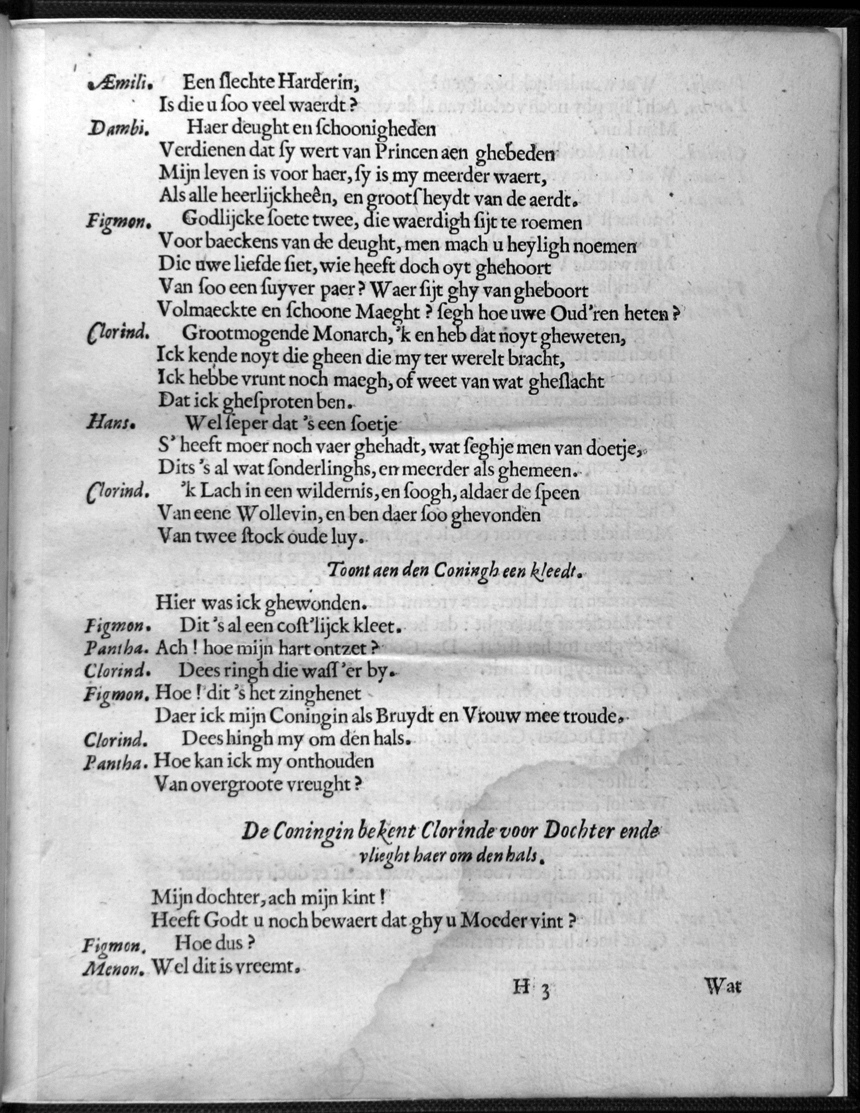 Æmili. Een slechte Harderin,
Is die u soo veel waerdt?
Dambi. Haer deught en schoonigheden
Verdienen dat sy wert van Princen aen ghebeden
Mijn leven is voor haer, sy is my meerder waert,
Als alle heerlijckheên, en grootsheydt van de aerdt.
Figmon. Godlijcke soete twee, die waerdigh sijt te roemen
Voor baeckens van de deught, men mach u heyligh noemen
Die uwe liefde siet, wie heeft doch oyt ghehoort
Van soo een suyver paer? Waer sijt ghy van gheboort
Volmaeckte en schoone Maeght? segh hoe uwe Oud'ren heten?
Clorind. Grootmogende Monarch, 'k en heb dat noyt gheweten,
Ick kende noyt die gheen die my ter werelt bracht,
Ick hebbe vrunt noch maegh, of weet van wat gheslacht
Dat ick ghesproten ben.
Hans. Wel seper dat 's een soetje
S' heeft moer noch vaer ghehadt, wat seghje men van doetje,
Dits 's al wat sonderlinghs, en meerder als ghemeen.
Clorind. 'k Lach in een wildernis, en soogh, aldaer de speen
Van eene Wollevin, en ben daer soo ghevonden
Van twee stock oude luy.
Toont aen den Coningh een kleedt.
Hier was ick ghewonden.
Figmon. Dit 's al een cost'lijck kleet.
Pantha. Ach! hoe mijn hart ontzet?
Clorind. Dees ringh die wass'er by.
Figmon. Hoe! dit 's het zinghenet
Daer ick mijn Coningin als Bruydt en Vrouw mee troude.
Clorind. Dees hingh my om den hals.
Pantha. Hoe kan ick my onthouden
Van overgroote vreught?
De Coningin bekent Clorinde voor Dochter ende
vlieght haer om den hals.
Mijn dochter, ach mijn kint!
Heeft Godt u noch bewaert dat ghy u Moeder vint?
Figmon. Hoe dus?
Menon. Wel dit is vreemt.
H 3 Wat